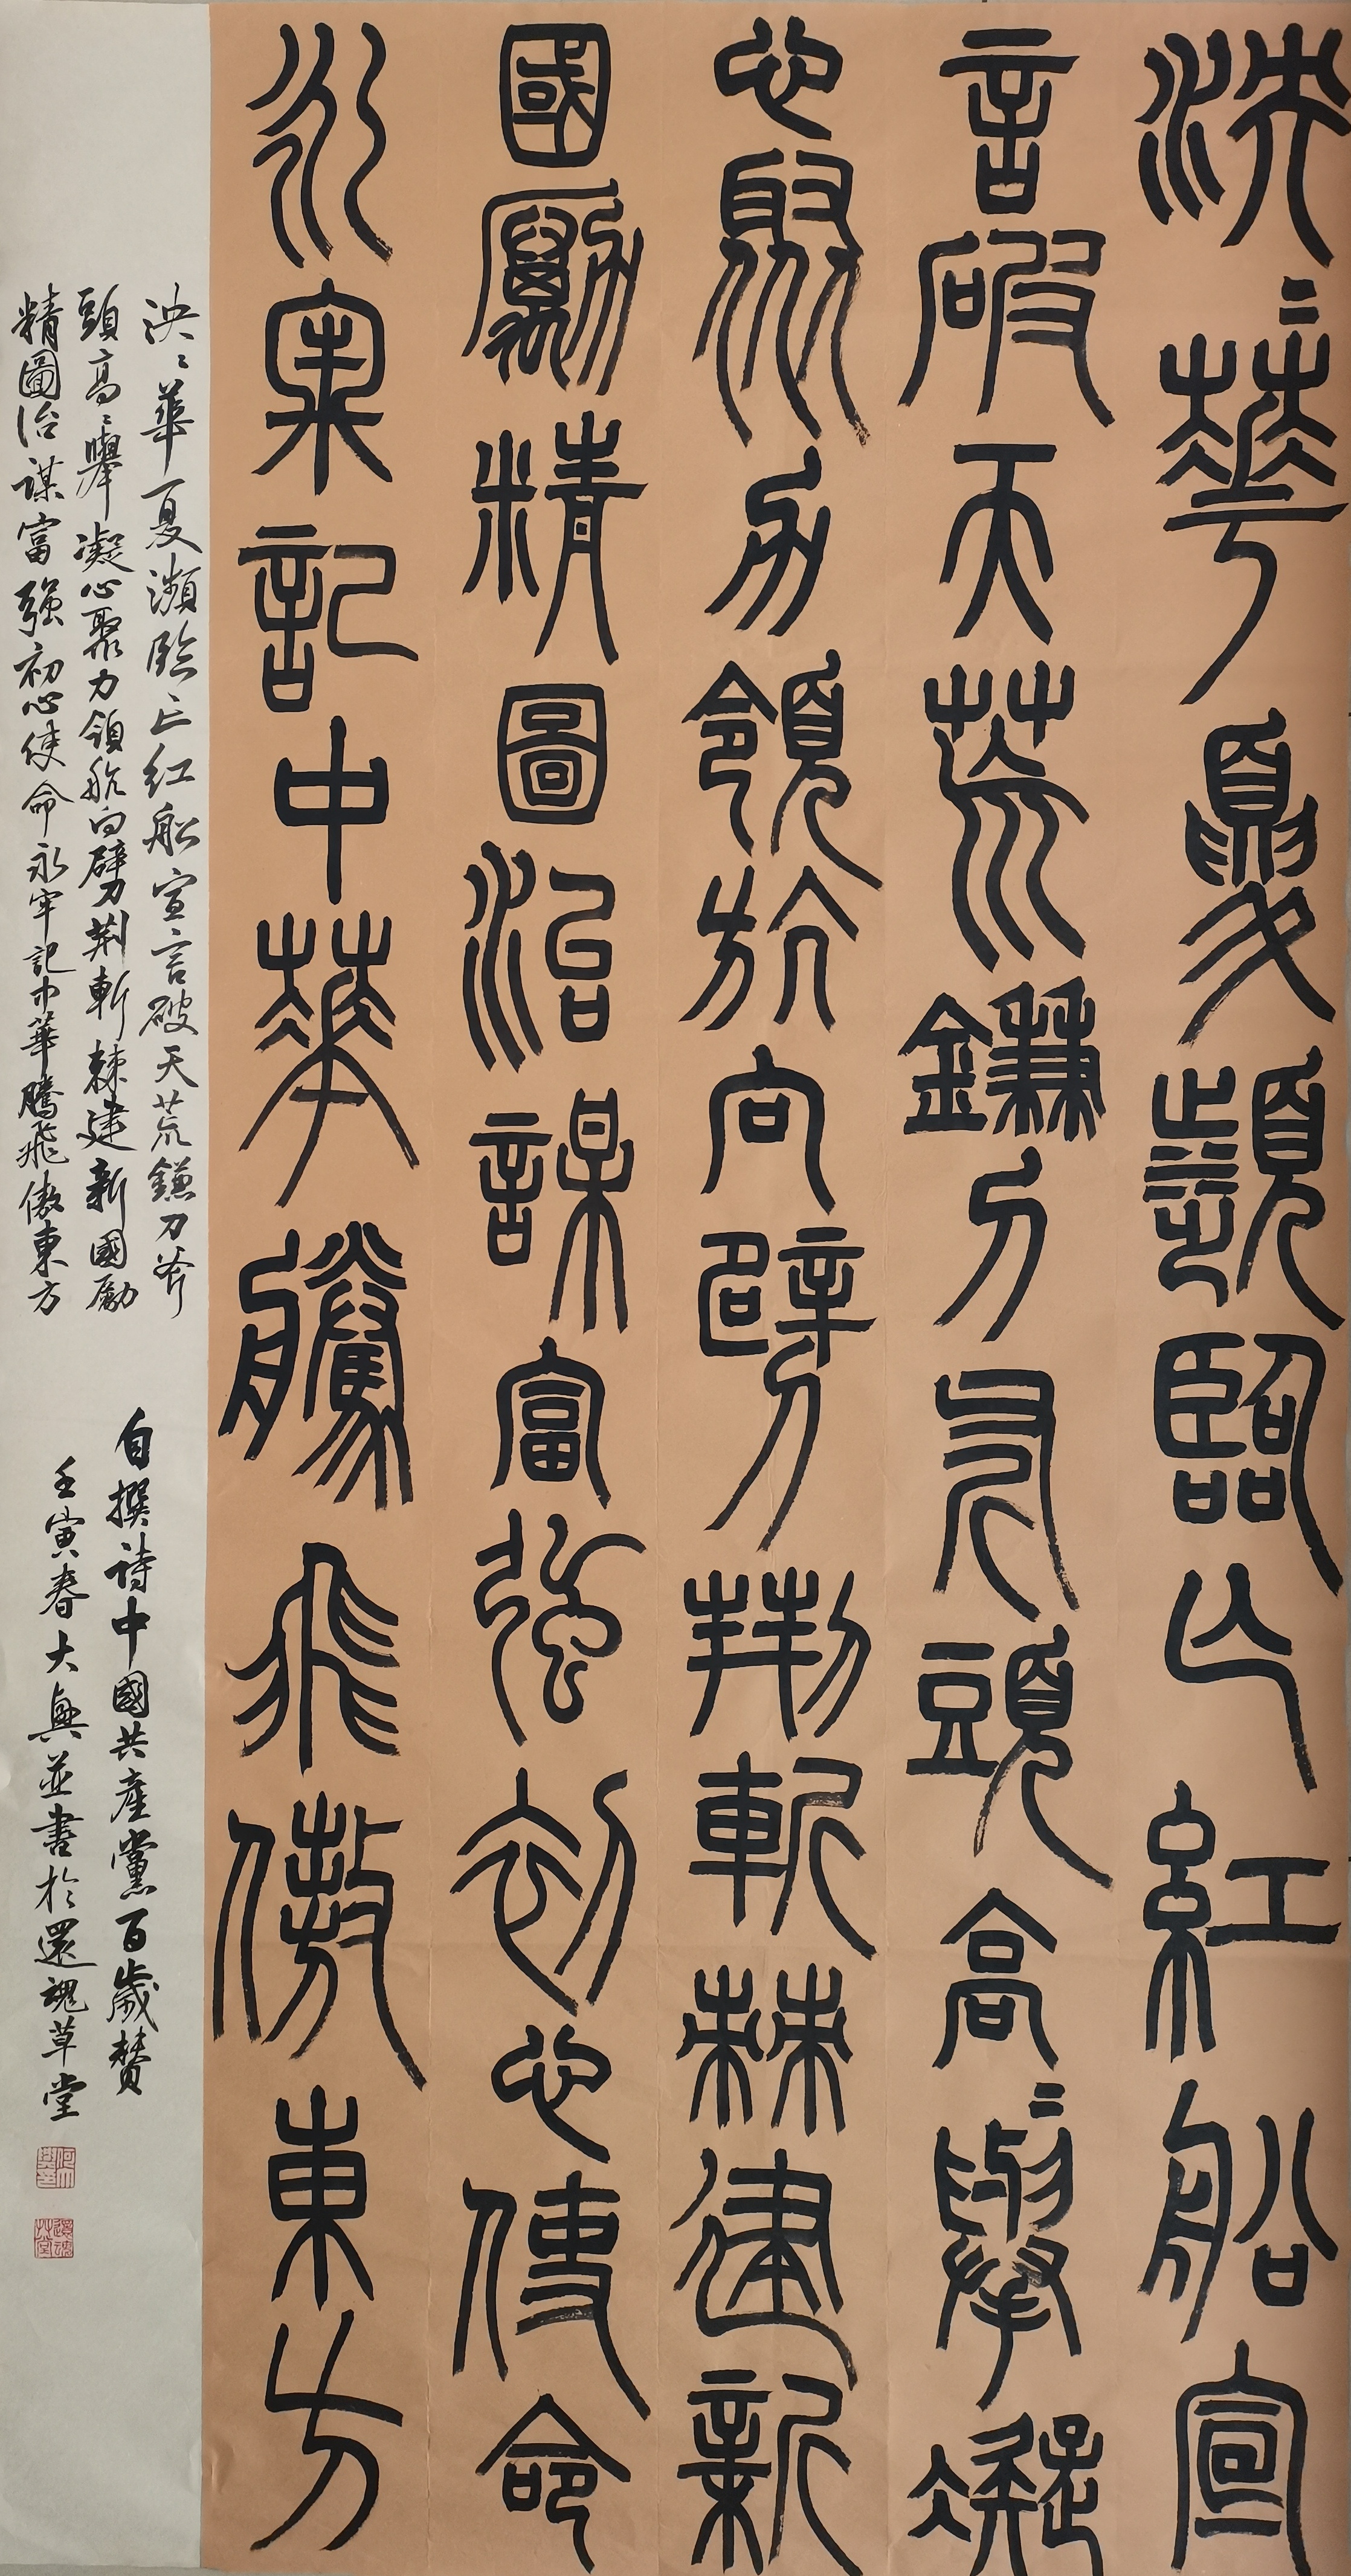 泱〻華夏瀕臨亡紅船宣
言破天荒鐮刀斧頭高〻舉凝
心聚力領航向劈荊斬棘建新
國勵精圖治謀富強初心使命
永牢記中華騰飛傲東方
泱〻華夏瀕臨亡紅船宣言破天荒鐮刀斧
頭高〻舉凝心聚力領航向劈荊斬棘建新國勵
精圖治謀富强初心使命永牢記中華騰飛傲東方
自撰詩中國共産黨百歲贊
壬寅春大興並書於還魂草堂
還魂草堂